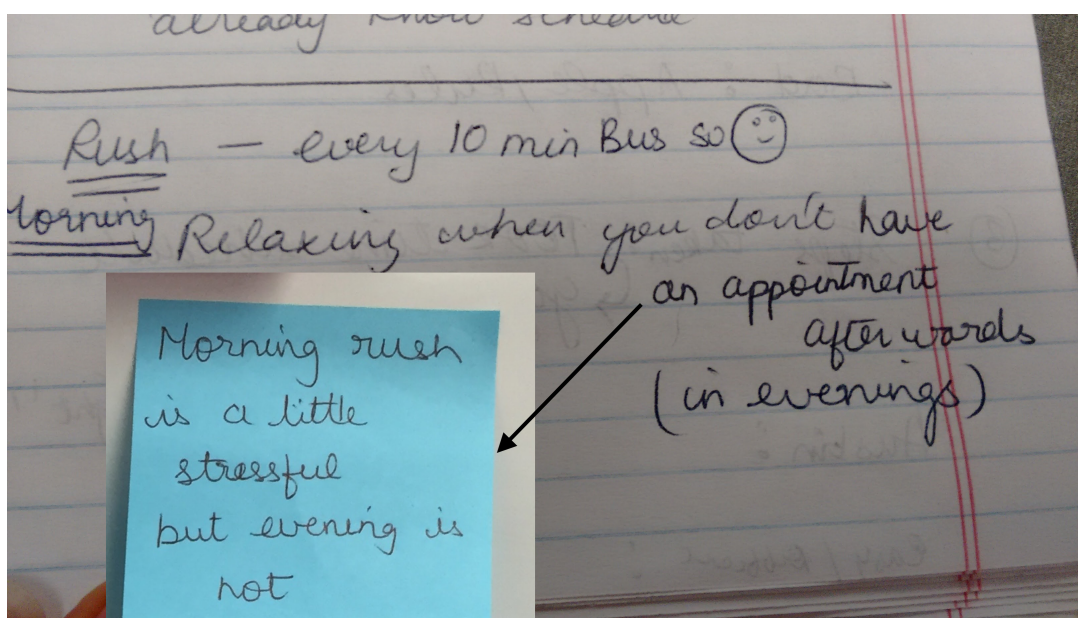 already know schedule
Rush — every 10 min Bus so
Morning Relaxing when you don't have
an appointment
afterwards
(in evenings)
Morning rush
is a little
stressful
but evening is
not